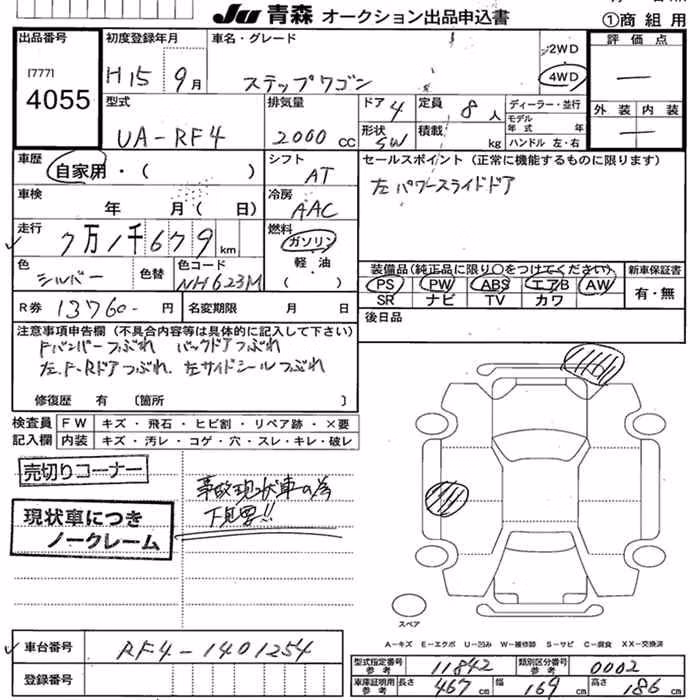 JU 青森 オークション出品申込書
①商組用
出品番号
[777]
4055
初度登録年月
H15 9月
車名・グレード
ステップワゴン
2WD
4WD
評価点
―
型式
UA-RF4
排気量
2000 CC
ドア 4
定員 8 人
形状 SW
積載 kg
ディーラー・並行
モデル年式 年
ハンドル 左・右
外装 内装
―
車歴
自家用・( )
シフト
AT
セールスポイント (正常に機能するものに限ります)
左パワースライドドア
車検
年 月( 日)
冷房
AAC
走行
7万1千679 km
燃料
ガソリン
軽・油
( )
色
シルバー
色替
色コード
NH623M
装備品(純正品に限り○をつけてください)
PS PW ABS エアB AW
SR ナビ TV カワ
新車保証書
有・無
R券 13760- 円
名変期限 月 日
後日品
注意事項申告欄 (不具合内容等は具体的に記入して下さい)
Fバンパーつぶれ バックドアつぶれ
左.F-Rドアつぶれ.左サイドシールつぶれ
修復歴 有 〔箇所 〕
検査員記入欄
FW キズ・飛石・ヒビ割・リペア跡・×要
内装 キズ・汚レ・コゲ・穴・スレ・キレ・破レ
売切りコーナー
事故現状車の為
下見要!!
現状車につき
ノークレーム
スペア
A-キズ E-エクボ U-凹み W-補修跡 S-サビ C-腐食 XX-交換済
車台番号
RF4-1401254
登録番号
型式指定番号参考 11842
類別区分番号参考 0002
車庫証明用参考 長さ 467 cm 幅 169 cm 高さ 186 cm